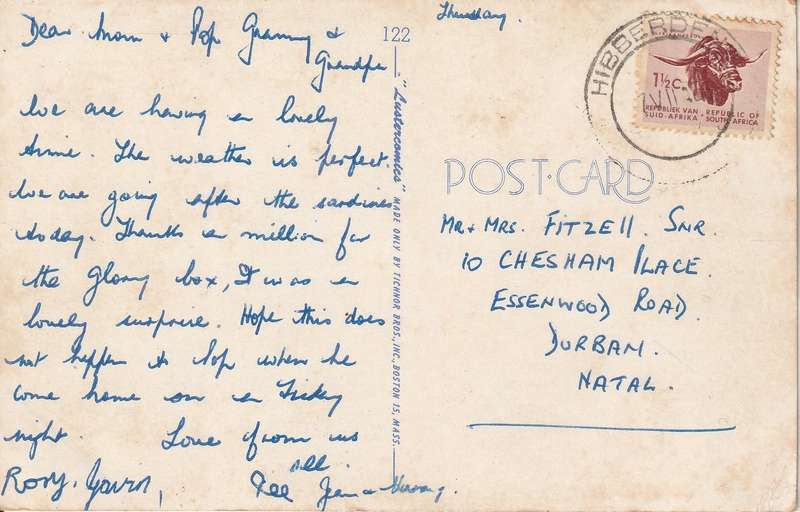 Dear Mom + Pop Granny &
Grandpa
We are having a lovely
time. The weather is perfect.
We are going after the sardines
today. Thanks a million for
the glory box, It was a
lovely surprise. Hope this does
not happen to Pop when he
come home on a Friday
night. Love from us
all.
Rory, Gavin, Jean &
122
"Lustercomics" MADE ONLY BY TICHNOR BROS., INC., BOSTON 15, MASS.
Thursday
HIBBERDENE
1½c
REPUBLIEK VAN REPUBLIC OF
SUID-AFRIKA SOUTH AFRICA
POST·CARD
Mr & MRS. FITZELL. SNR.
10 CHESHAM PLACE.
ESSENWOOD ROAD.
DURBAN.
NATAL.